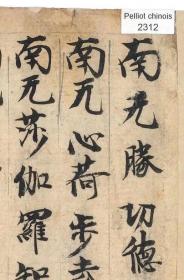 Pelliot chinois
2312
南无勝功德
南无心荷步去
南无莎伽羅智